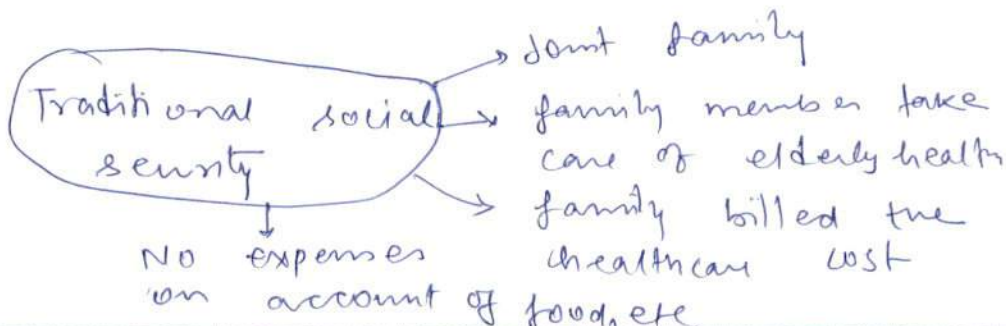 Traditional social
security
Joint family
family member take
care of elderly health
family billed the
healthcare cost
No expenses
on account of food, etc